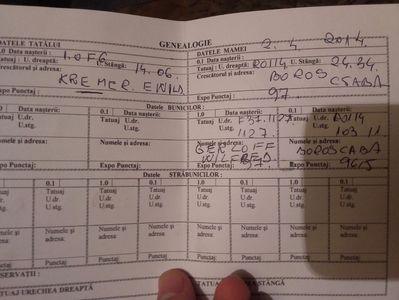 GENEALOGIE
DATELE TATĂLUI
DATELE MAMEI
1.0 F6 Data nașterii:
0.1 Data nașterii: 2. 4. 2014.
Tatuaj: U. dreaptă: U. Stângă: 14.06.
Tatuaj: U. dreaptă: RO114 U. Stângă: 24.34.
Crescătorul și adresa:
KREMER
Crescătorul și adresa: BOROS CSABA
Expo Punctaj:
Expo Punctaj: 97.
Datele BUNICILOR:
1.0 Data nașterii:
0.1 Data nașterii:
1.0 Data nașterii:
0.1 Data nașterii:
Tatuaj U.dr. U.stg.
Tatuaj U.dr. U.stg.
Tatuaj U.dr. U.stg. 1127.
Tatuaj U.dr. U.stg. 103 11
Numele și adresa:
Numele și adresa:
Numele și adresa: WILFRED
Numele și adresa: BOROS CSABA
Expo Punctaj:
Expo Punctaj:
Expo Punctaj: 97.
Expo Punctaj: 96/5
Datele STRĂBUNICILOR:
1.0 0.1 1.0 0.1 1.0 0.1 1.0 0.1
Tatuaj Tatuaj Tatuaj Tatuaj Tatuaj Tatuaj Tatuaj
U.dr. U.dr. U.dr. U.dr. U.dr. U.dr. U.dr.
U.stg. U.stg. U.stg. U.stg. U.stg. U.stg. U.stg.
Numele și adresa: Numele și adresa: Numele și adresa: Numele și adresa: Numele și adresa: Numele și adresa: Numele și adresa:
Punctaj Punctaj Punctaj Punctaj Punctaj Punctaj Punctaj
TATUAJ URECHEA DREAPTĂ
STÂNGĂ